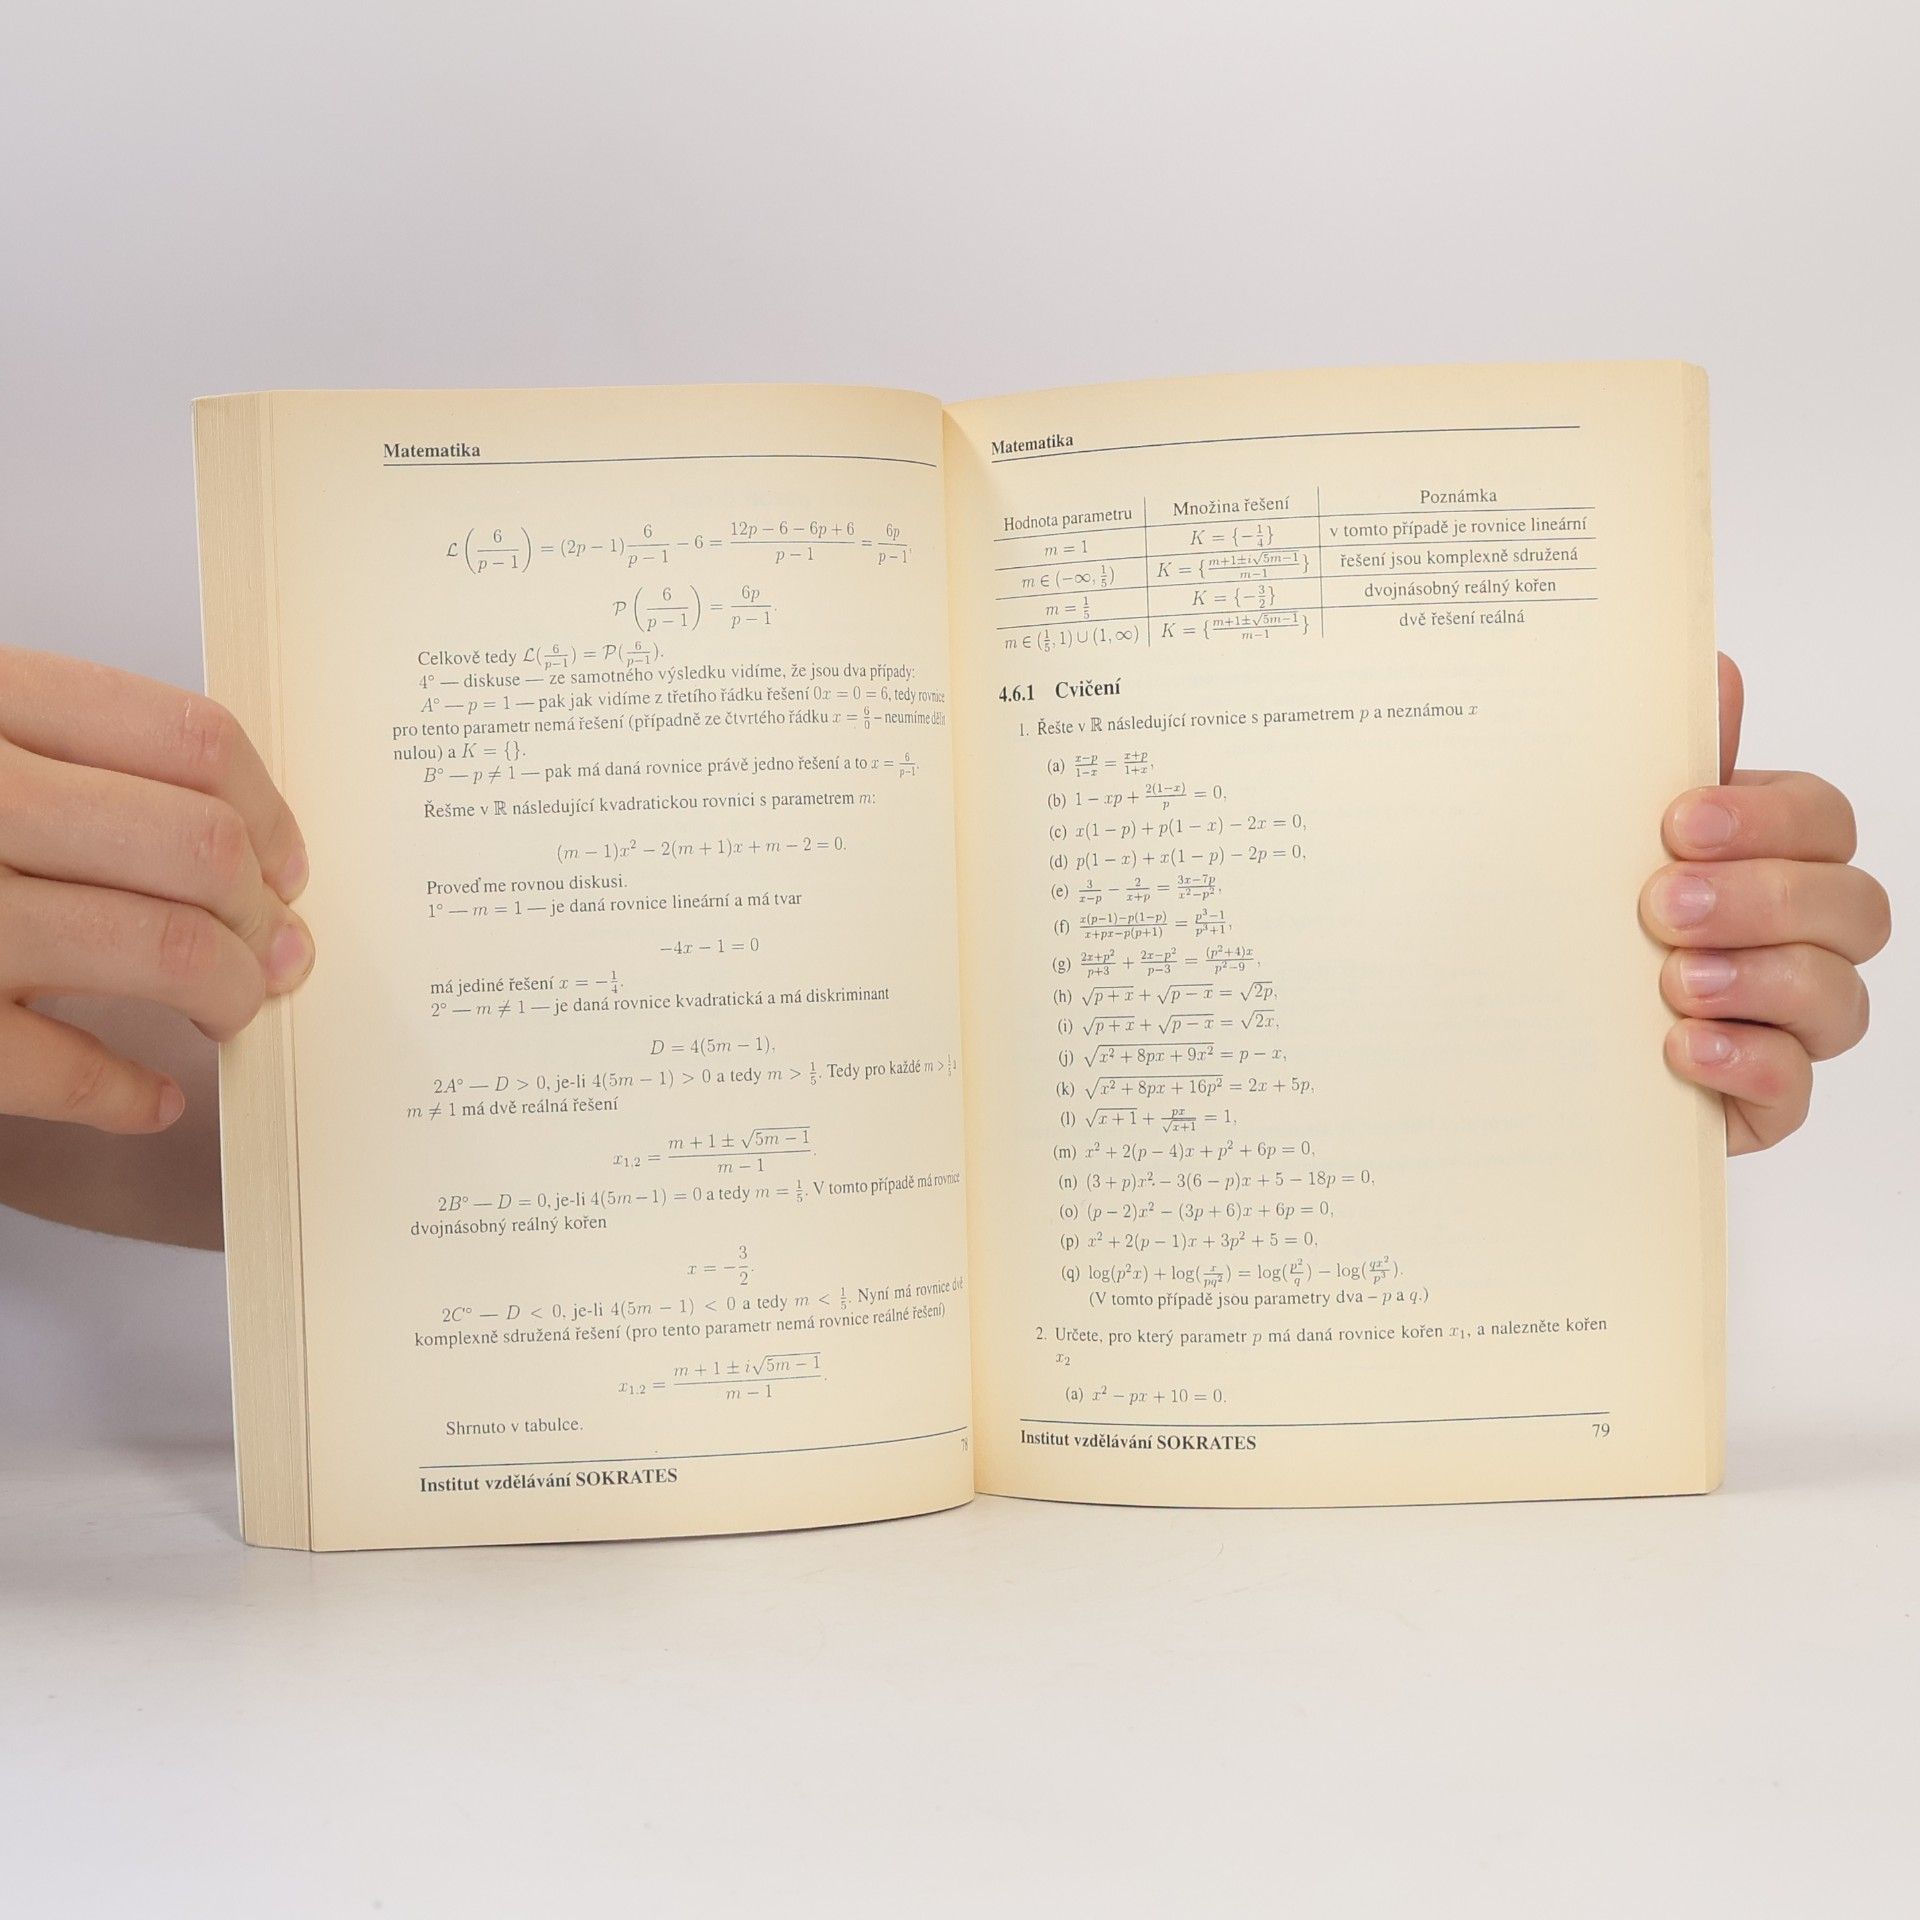 Matematika
$\mathcal{L}\left(\frac{6}{p-1}\right) = (2p-1)\frac{6}{p-1} - 6 = \frac{12p-6-6p+6}{p-1} = \frac{6p}{p-1},$
$\mathcal{P}\left(\frac{6}{p-1}\right) = \frac{6p}{p-1}.$
Celkově tedy $\mathcal{L}(\frac{6}{p-1}) = \mathcal{P}(\frac{6}{p-1})$.
4° — diskuse — ze samotného výsledku vidíme, že jsou dva případy:
A° — p = 1 — pak jak vidíme z třetího řádku řešení 0x = 0 = 6, tedy rovnice
pro tento parametr nemá řešení (případně ze čtvrtého řádku $x = \frac{6}{0}$ – neumíme dělit
nulou) a K = {}.
B° — p ≠ 1 — pak má daná rovnice právě jedno řešení a to $x = \frac{6}{p-1}$.
Řešme v ℝ následující kvadratickou rovnici s parametrem m:
$(m-1)x^2 - 2(m+1)x + m - 2 = 0.$
Proveďme rovnou diskusi.
1° — m = 1 — je daná rovnice lineární a má tvar
−4x − 1 = 0
má jediné řešení $x = -\frac{1}{4}$.
2° — m ≠ 1 — je daná rovnice kvadratická a má diskriminant
D = 4(5m − 1),
2A° — D > 0, je-li 4(5m − 1) > 0 a tedy $m > \frac{1}{5}$. Tedy pro každé $m > \frac{1}{5}$ a
m ≠ 1 má dvě reálná řešení
$x_{1,2} = \frac{m+1\pm\sqrt{5m-1}}{m-1}.$
2B° — D = 0, je-li 4(5m − 1) = 0 a tedy $m = \frac{1}{5}$. V tomto případě má rovnice
dvojnásobný reálný kořen
$x = -\frac{3}{2}.$
2C° — D < 0, je-li 4(5m − 1) < 0 a tedy $m < \frac{1}{5}$. Nyní má rovnice dvě
komplexně sdružená řešení (pro tento parametr nemá rovnice reálné řešení)
$x_{1,2} = \frac{m+1\pm i\sqrt{5m-1}}{m-1}.$
Shrnuto v tabulce.
78
Institut vzdělávání SOKRATES
Matematika
Hodnota parametru | Množina řešení | Poznámka
m = 1 | $K = \{-\frac{1}{4}\}$ | v tomto případě je rovnice lineární
$m \in (-\infty, \frac{1}{5})$ | $K = \{\frac{m+1\pm i\sqrt{5m-1}}{m-1}\}$ | řešení jsou komplexně sdružená
$m = \frac{1}{5}$ | $K = \{-\frac{3}{2}\}$ | dvojnásobný reálný kořen
$m \in (\frac{1}{5}, 1) \cup (1, \infty)$ | $K = \{\frac{m+1\pm\sqrt{5m-1}}{m-1}\}$ | dvě řešení reálná
4.6.1 Cvičení
1. Řešte v ℝ následující rovnice s parametrem p a neznámou x
(a) $\frac{x-p}{1-x} = \frac{x+p}{1+x},$
(b) $1 - xp + \frac{2(1-x)}{p} = 0,$
(c) x(1 − p) + p(1 − x) − 2x = 0,
(d) p(1 − x) + x(1 − p) − 2p = 0,
(e) $\frac{3}{x-p} - \frac{2}{x+p} = \frac{3x-7p}{x^2-p^2},$
(f) $\frac{x(p-1)-p(1-p)}{x+px-p(p+1)} = \frac{p^3-1}{p^3+1},$
(g) $\frac{2x+p^2}{p+3} + \frac{2x-p^2}{p-3} = \frac{(p^2+4)x}{p^2-9},$
(h) $\sqrt{p+x} + \sqrt{p-x} = \sqrt{2p},$
(i) $\sqrt{p+x} + \sqrt{p-x} = \sqrt{2x},$
(j) $\sqrt{x^2+8px+9x^2} = p - x,$
(k) $\sqrt{x^2+8px+16p^2} = 2x + 5p,$
(l) $\sqrt{x+1} + \frac{px}{\sqrt{x+1}} = 1,$
(m) $x^2 + 2(p-4)x + p^2 + 6p = 0,$
(n) $(3+p)x^2 - 3(6-p)x + 5 - 18p = 0,$
(o) $(p-2)x^2 - (3p+6)x + 6p = 0,$
(p) $x^2 + 2(p-1)x + 3p^2 + 5 = 0,$
(q) $\log(p^2x) + \log(\frac{x}{pq^2}) = \log(\frac{p^2}{q}) - \log(\frac{qx^2}{p^3}).$
(V tomto případě jsou parametry dva – p a q.)
2. Určete, pro který parametr p má daná rovnice kořen $x_1$, a nalezněte kořen
$x_2$
(a) $x^2 - px + 10 = 0.$
Institut vzdělávání SOKRATES
79